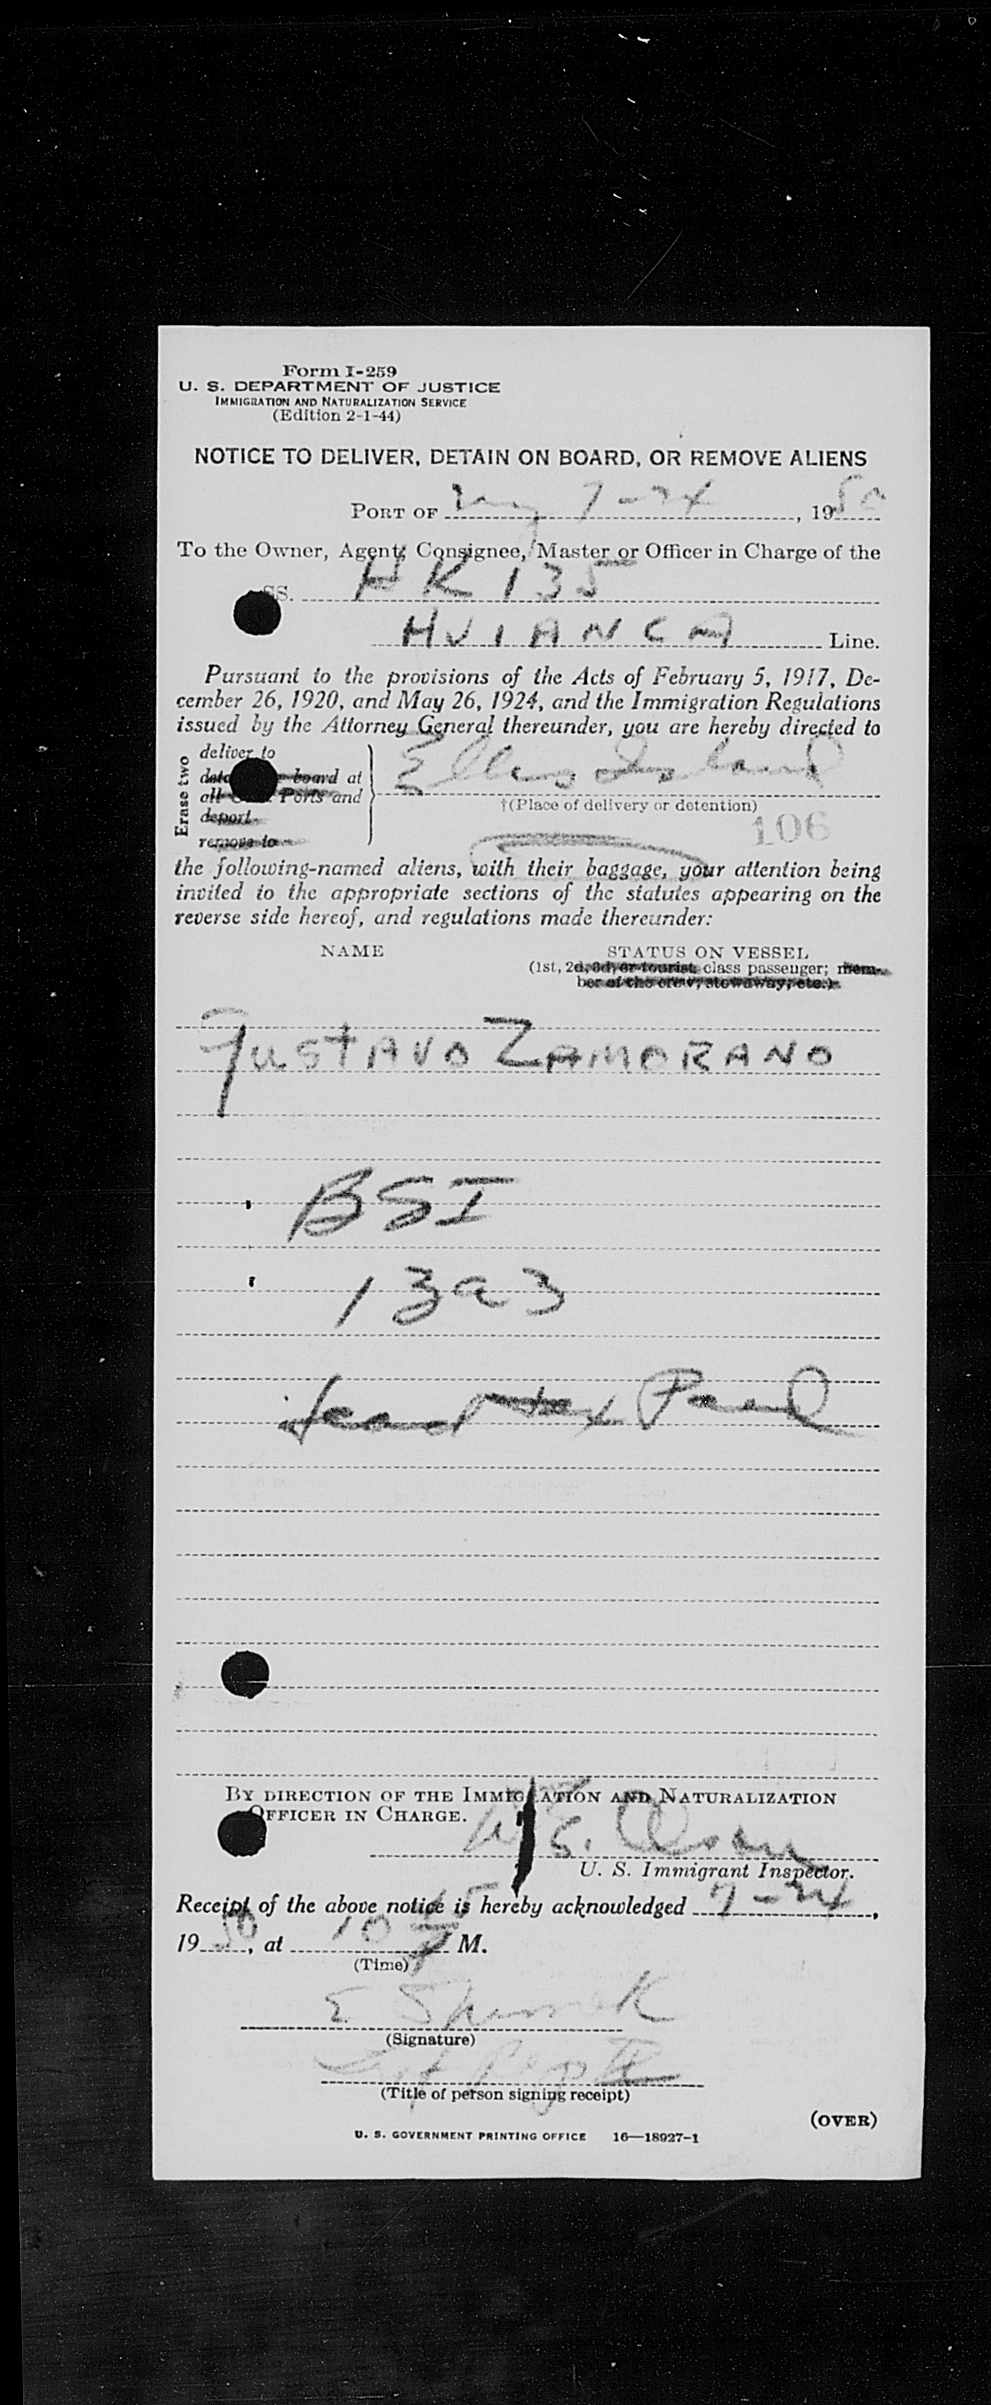 Form I-259
U. S. DEPARTMENT OF JUSTICE
IMMIGRATION AND NATURALIZATION SERVICE
(Edition 2-1-44)
NOTICE TO DELIVER, DETAIN ON BOARD, OR REMOVE ALIENS
PORT OF NY 7-24, 1950
To the Owner, Agent, Consignee, Master or Officer in Charge of the
SS. HK 135
HVIANCA Line.
Pursuant to the provisions of the Acts of February 5, 1917, De-
cember 26, 1920, and May 26, 1924, and the Immigration Regulations
issued by the Attorney General thereunder, you are hereby directed to
Erase two
deliver to
board at
all Ports and
deport
remove to
Ellis Island
†(Place of delivery or detention)
106
the following-named aliens, with their baggage, your attention being
invited to the appropriate sections of the statutes appearing on the
reverse side hereof, and regulations made thereunder:
NAME STATUS ON VESSEL
(1st, 2d, 3d, or tourist class passenger; mem-
ber of the crew, stowaway, etc.)
GUSTAVO ZAMORANO
BSI
13a3
Head tax Paid
BY DIRECTION OF THE IMMIGRATION AND NATURALIZATION
OFFICER IN CHARGE.
E. Olson
U. S. Immigrant Inspector.
Receipt of the above notice is hereby acknowledged 7-24,
1950, at 10 M.
(Time)
E
(Signature)
(Title of person signing receipt)
(OVER)
U. S. GOVERNMENT PRINTING OFFICE 16—18927-1